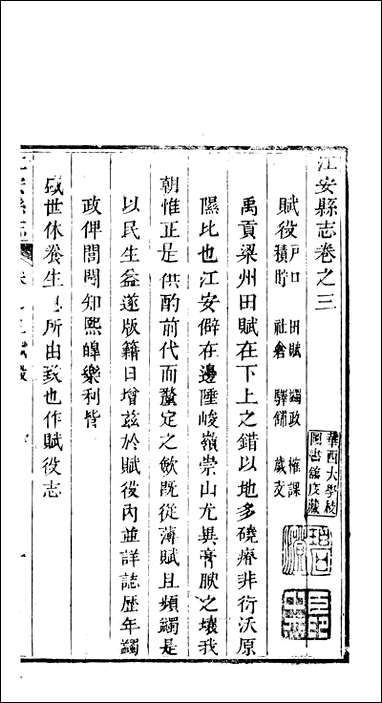 江安縣志卷之三
賦役 戶口 田賦 蠲政 榷課
積貯 社倉 驛舖 歲支
禹貢梁州田賦在下上之錯以地多磽瘠非衍沃原
隰比也江安僻在邊陲峻嶺崇山尤異膏腴之壤我
朝惟正是供酌前代而釐定之斂既從薄賦且頻蠲是
以民生益遂版籍日增茲於賦役內並詳誌歷年蠲
政俾閭閻知熙皥樂利皆
盛世休養生息所由致也作賦役志
華西大學校
圖書舘庋藏